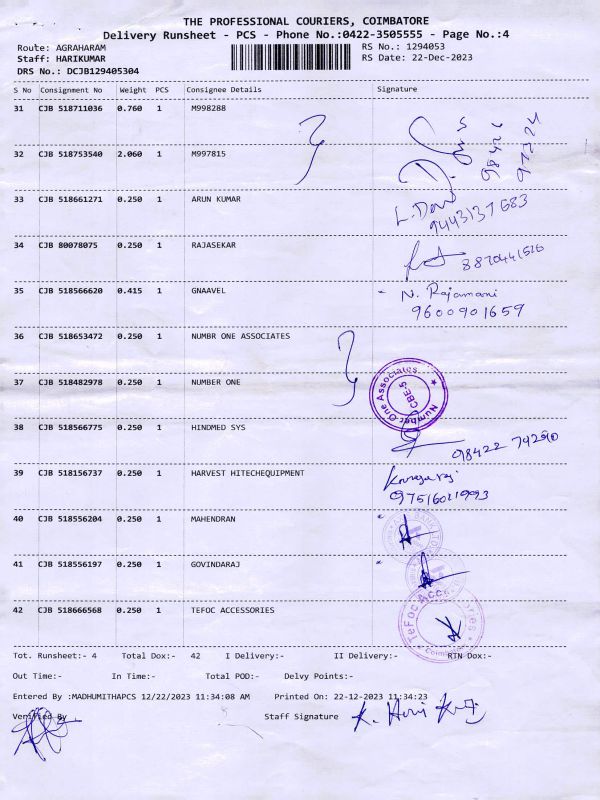 THE PROFESSIONAL COURIERS, COIMBATORE
Delivery Runsheet - PCS - Phone No.:0422-3505555 - Page No.:4
Route: AGRAHARAM
RS No.: 1294053
Staff: HARIKUMAR
RS Date: 22-Dec-2023
DRS No.: DCJB129405304
S No Consignment No Weight PCS Consignee Details Signature
31 CJB 518711036 0.760 1 M998288
32 CJB 518753540 2.060 1 M997815
33 CJB 518661271 0.250 1 ARUN KUMAR
9443137683
34 CJB 80078075 0.250 1 RAJASEKAR
35 CJB 518566620 0.415 1 GNAAVEL N. Rajamani
9600901659
36 CJB 518653472 0.250 1 NUMBR ONE ASSOCIATES
37 CJB 518482978 0.250 1 NUMBER ONE
Number One Associates
CBE-5
38 CJB 518566775 0.250 1 HINDMED SYS
98422 74290
39 CJB 518156737 0.250 1 HARVEST HITECHEQUIPMENT
40 CJB 518556204 0.250 1 MAHENDRAN
41 CJB 518556197 0.250 1 GOVINDARAJ
42 CJB 518666568 0.250 1 TEFOC ACCESSORIES
TeFoc Accessories
Coimbatore
Tot. Runsheet:- 4 Total Dox:- 42 I Delivery:- II Delivery:- RTN Dox:-
Out Time:- In Time:- Total POD:- Delvy Points:-
Entered By :MADHUMITHAPCS 12/22/2023 11:34:08 AM Printed On: 22-12-2023 11:34:23
Verified By Staff Signature